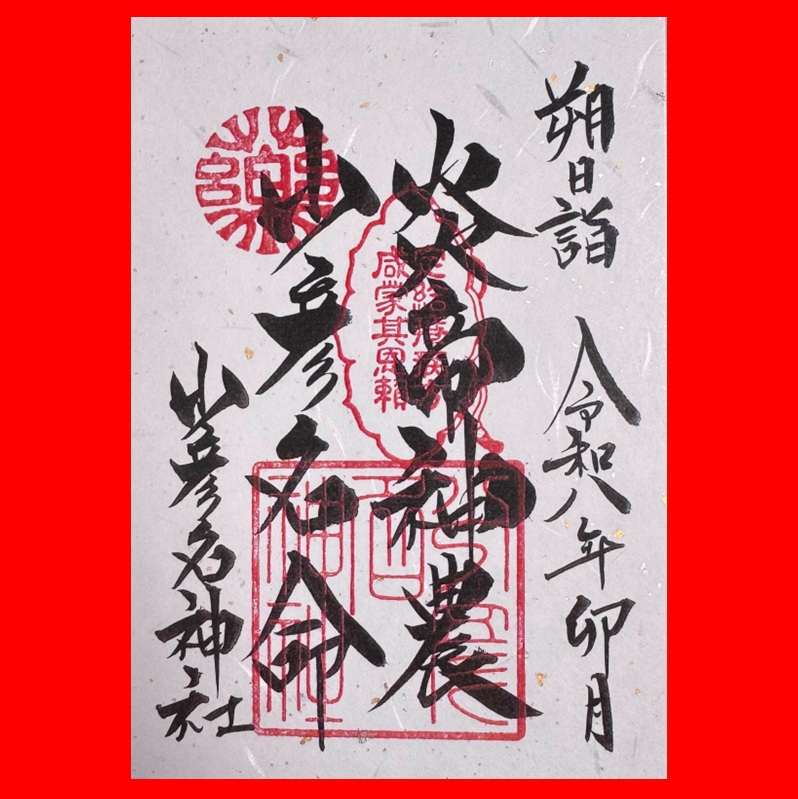 朔日詣
令和八年卯月
炎帝神農
少彦名命
少彦名神社
咸蒙其恩頼